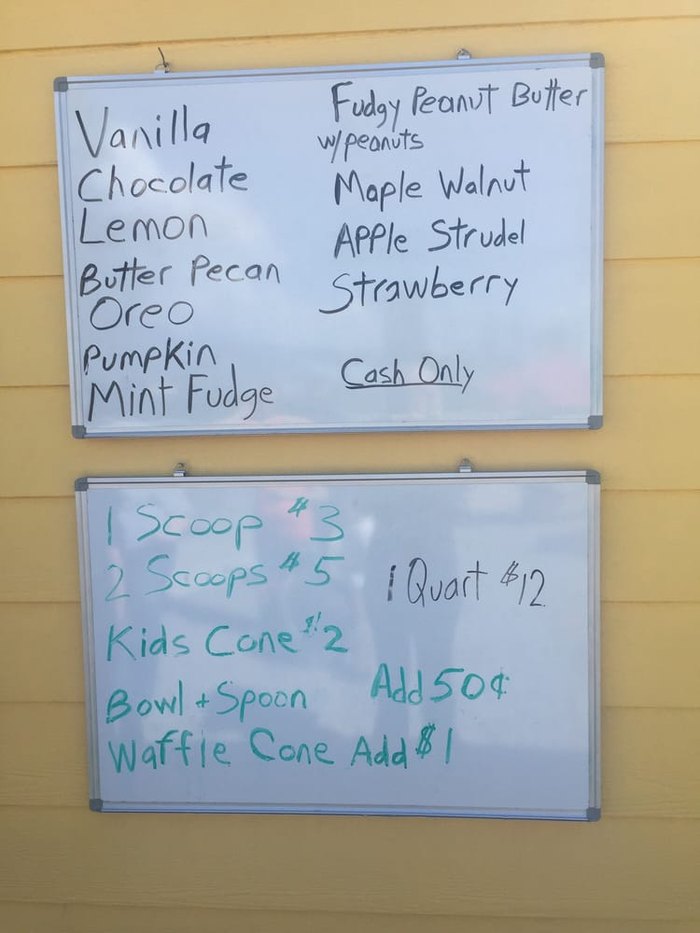 Vanilla
Chocolate
Lemon
Butter Pecan
Oreo
Pumpkin
Mint Fudge
Fudgy Peanut Butter
w/peanuts
Maple Walnut
Apple Strudel
Strawberry
Cash Only
1 Scoop $3
2 Scoops $5
Kids Cone $2
Bowl + Spoon Add 50¢
Waffle Cone Add $1
1 Quart $12